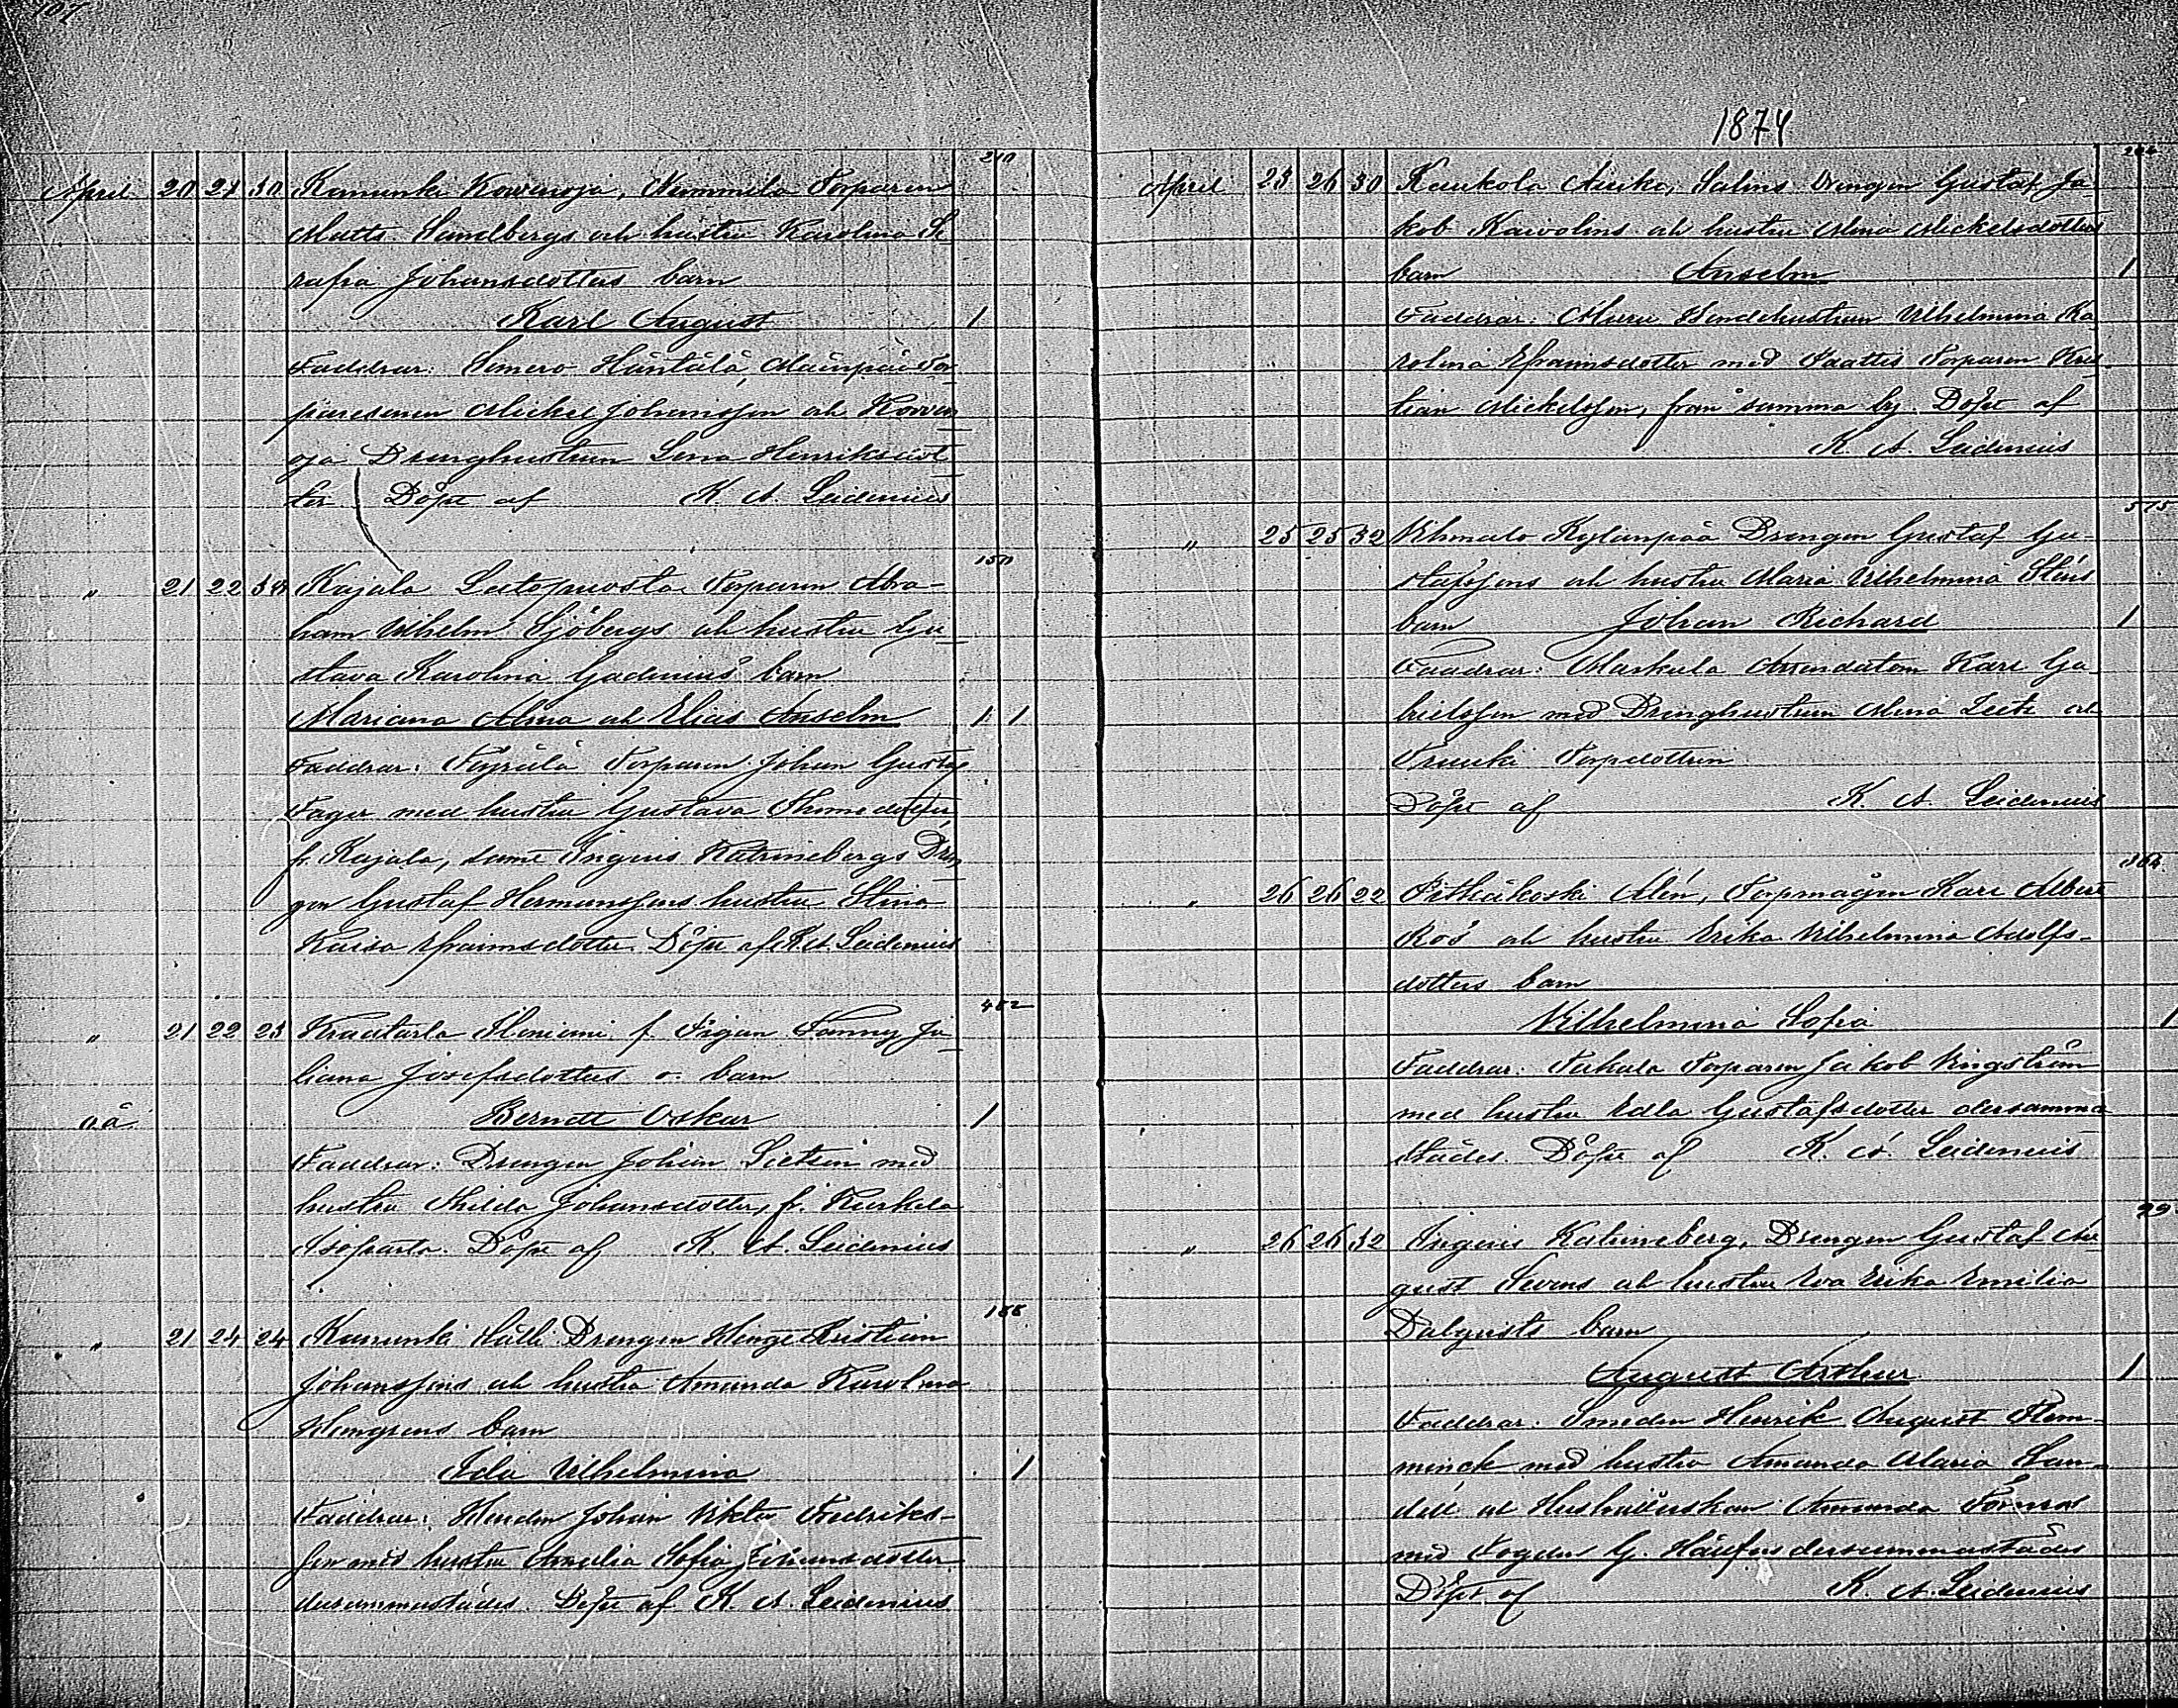 107
210
April 20 21 30 Kamunki Kowenoja, Nummila Torparen
Matts Sandbergs och hustru Karolina Se
rafia Johansdotters barn
Karl August 1
Faddrar: Somero Häntälä, Tor
paresonen Mickel Johansson och Korven
oja Dränghustrun Lena Henriksdot
ter. Döpt af K. A. Leidenius
150
" 21 22 38 Kajala Torparen Abra-
ham Vilhelm Sjöbergs och hustru Gu
stava Karolina Gadenius barn
Mariana Alma och Elias Anselm 1 1
Faddrar: Töyrälä Torparen Johan Gustaf
Fager med hustru Gustava Thomedotter
fr. Kajala, samt Ingeris Katrinebergs Drän
gen Gustaf Hermanssons hustru Stina
Kaisa Efraimsdotter. Döpt af K. A. Leidenius
482
" 21 22 23 f. Pigan Fanny Ju
liana Josefsdotters o. barn
oä Berndt Oskar 1
Faddrar: Drengen Johan med
hustru Hilda Johansdotter, fr. Kurkela
Isoparta. Döpt af K. A. Leidenius
188
" 21 24 24 Kamunki Hälli Drengen Kristian
Johanssons och hustru Amanda Karolina
barn
Ida Vilhelmina 1
Faddrar: Johan Viktor Fredriks-
son med hustru Amalia Sofia Johansdotter
dersammastädes. Döpt af K. A. Leidenius
1874
April 23 26 30 Raukola Salms Drengen Gustaf Ja
kob Kaivolins och hustru Alma Mickelsdotters
barn Anselm 1
Faddrar: Vilhelmina Ka
rolina Efraimsdotter med Torparen Kris
tian Mickelsson, från samma by. Döpt af
K. A. Leidenius
515
" 25 25 32 Vihmalo Kylänpää Drengen Gustaf Gu-
stafssons och hustru Maria Vilhelmina Stens
barn Johan Richard 1
Faddrar: Markula Arrendatorn Karl Ga
brielsson med Dränghustrun Alma och
Torpdottren
Döpt af K. A. Leidenius
364
" 26 26 22 Pitkäkoski Alén, Torpmågen Karl Albert
Ros och hustru Erika Vilhelmina Adolfs-
dotters barn
Vilhelmina Sofia 1
Faddrar: Torparen Jakob Ringström
med hustru Edla Gustafsdotter dersamma
städes. Döpt af K. A. Leidenius
99
" 26 26 32 Ingeris Katrineberg, Drengen Gustaf Au
gust och hustru Eva Erika Emilia
Dalqvists barn
August Arthur 1
Faddrar: Smeden Henrik August Flem-
minck med hustru Amanda Maria San
dell och Hushållerskan Amanda Törnros
med Fogden G. dersammastädes
Döpt af K. A. Leidenius